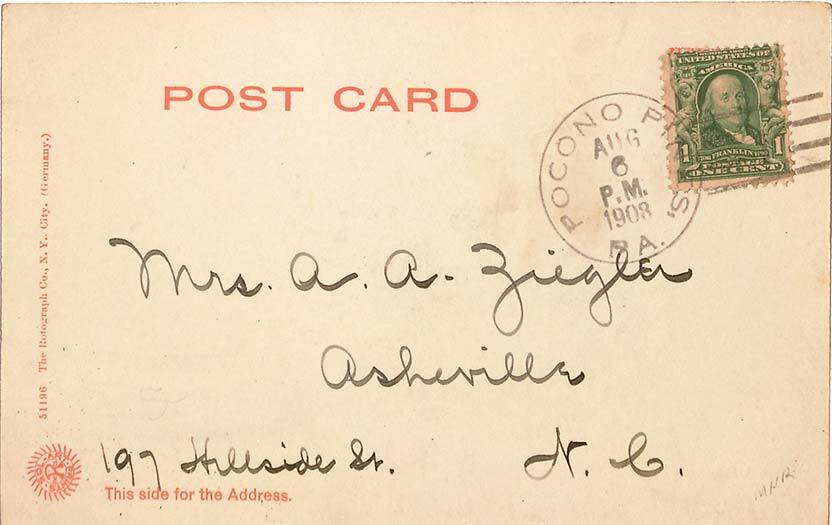 POST CARD
UNITED STATES OF
AMERICA
1
1
FRANKLIN
POSTAGE
ONE CENT
POCONO
AUG
6
P.M.
1908
PA.
51196 The Rotograph Co., N. Y. City. (Germany.)
Mrs. A. A. Ziegler
Asheville
197 Hillside St. N. C.
This side for the Address.
MHR